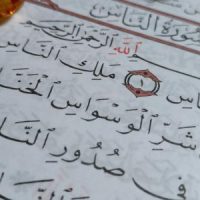 سُورَةُ النَّاسِ
اللَّهِ الرَّحْمَٰنِ الرَّحِيمِ
اسِ ١ مَلِكِ النَّاسِ
شَرِّ الْوَسْوَاسِ الْخَنَّا
فِي صُدُورِ النَّا